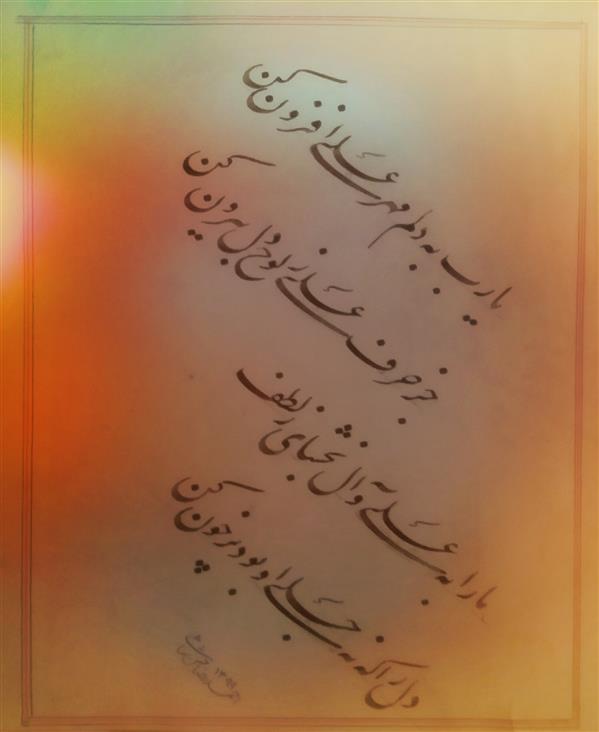 یارب به دلم مهر علی افزون کن
جز حرف علی ز لوح دل بیرون کن
ما را به علی و آل بخشای ز لطف
دل را که نه جای او بود پرخون کن